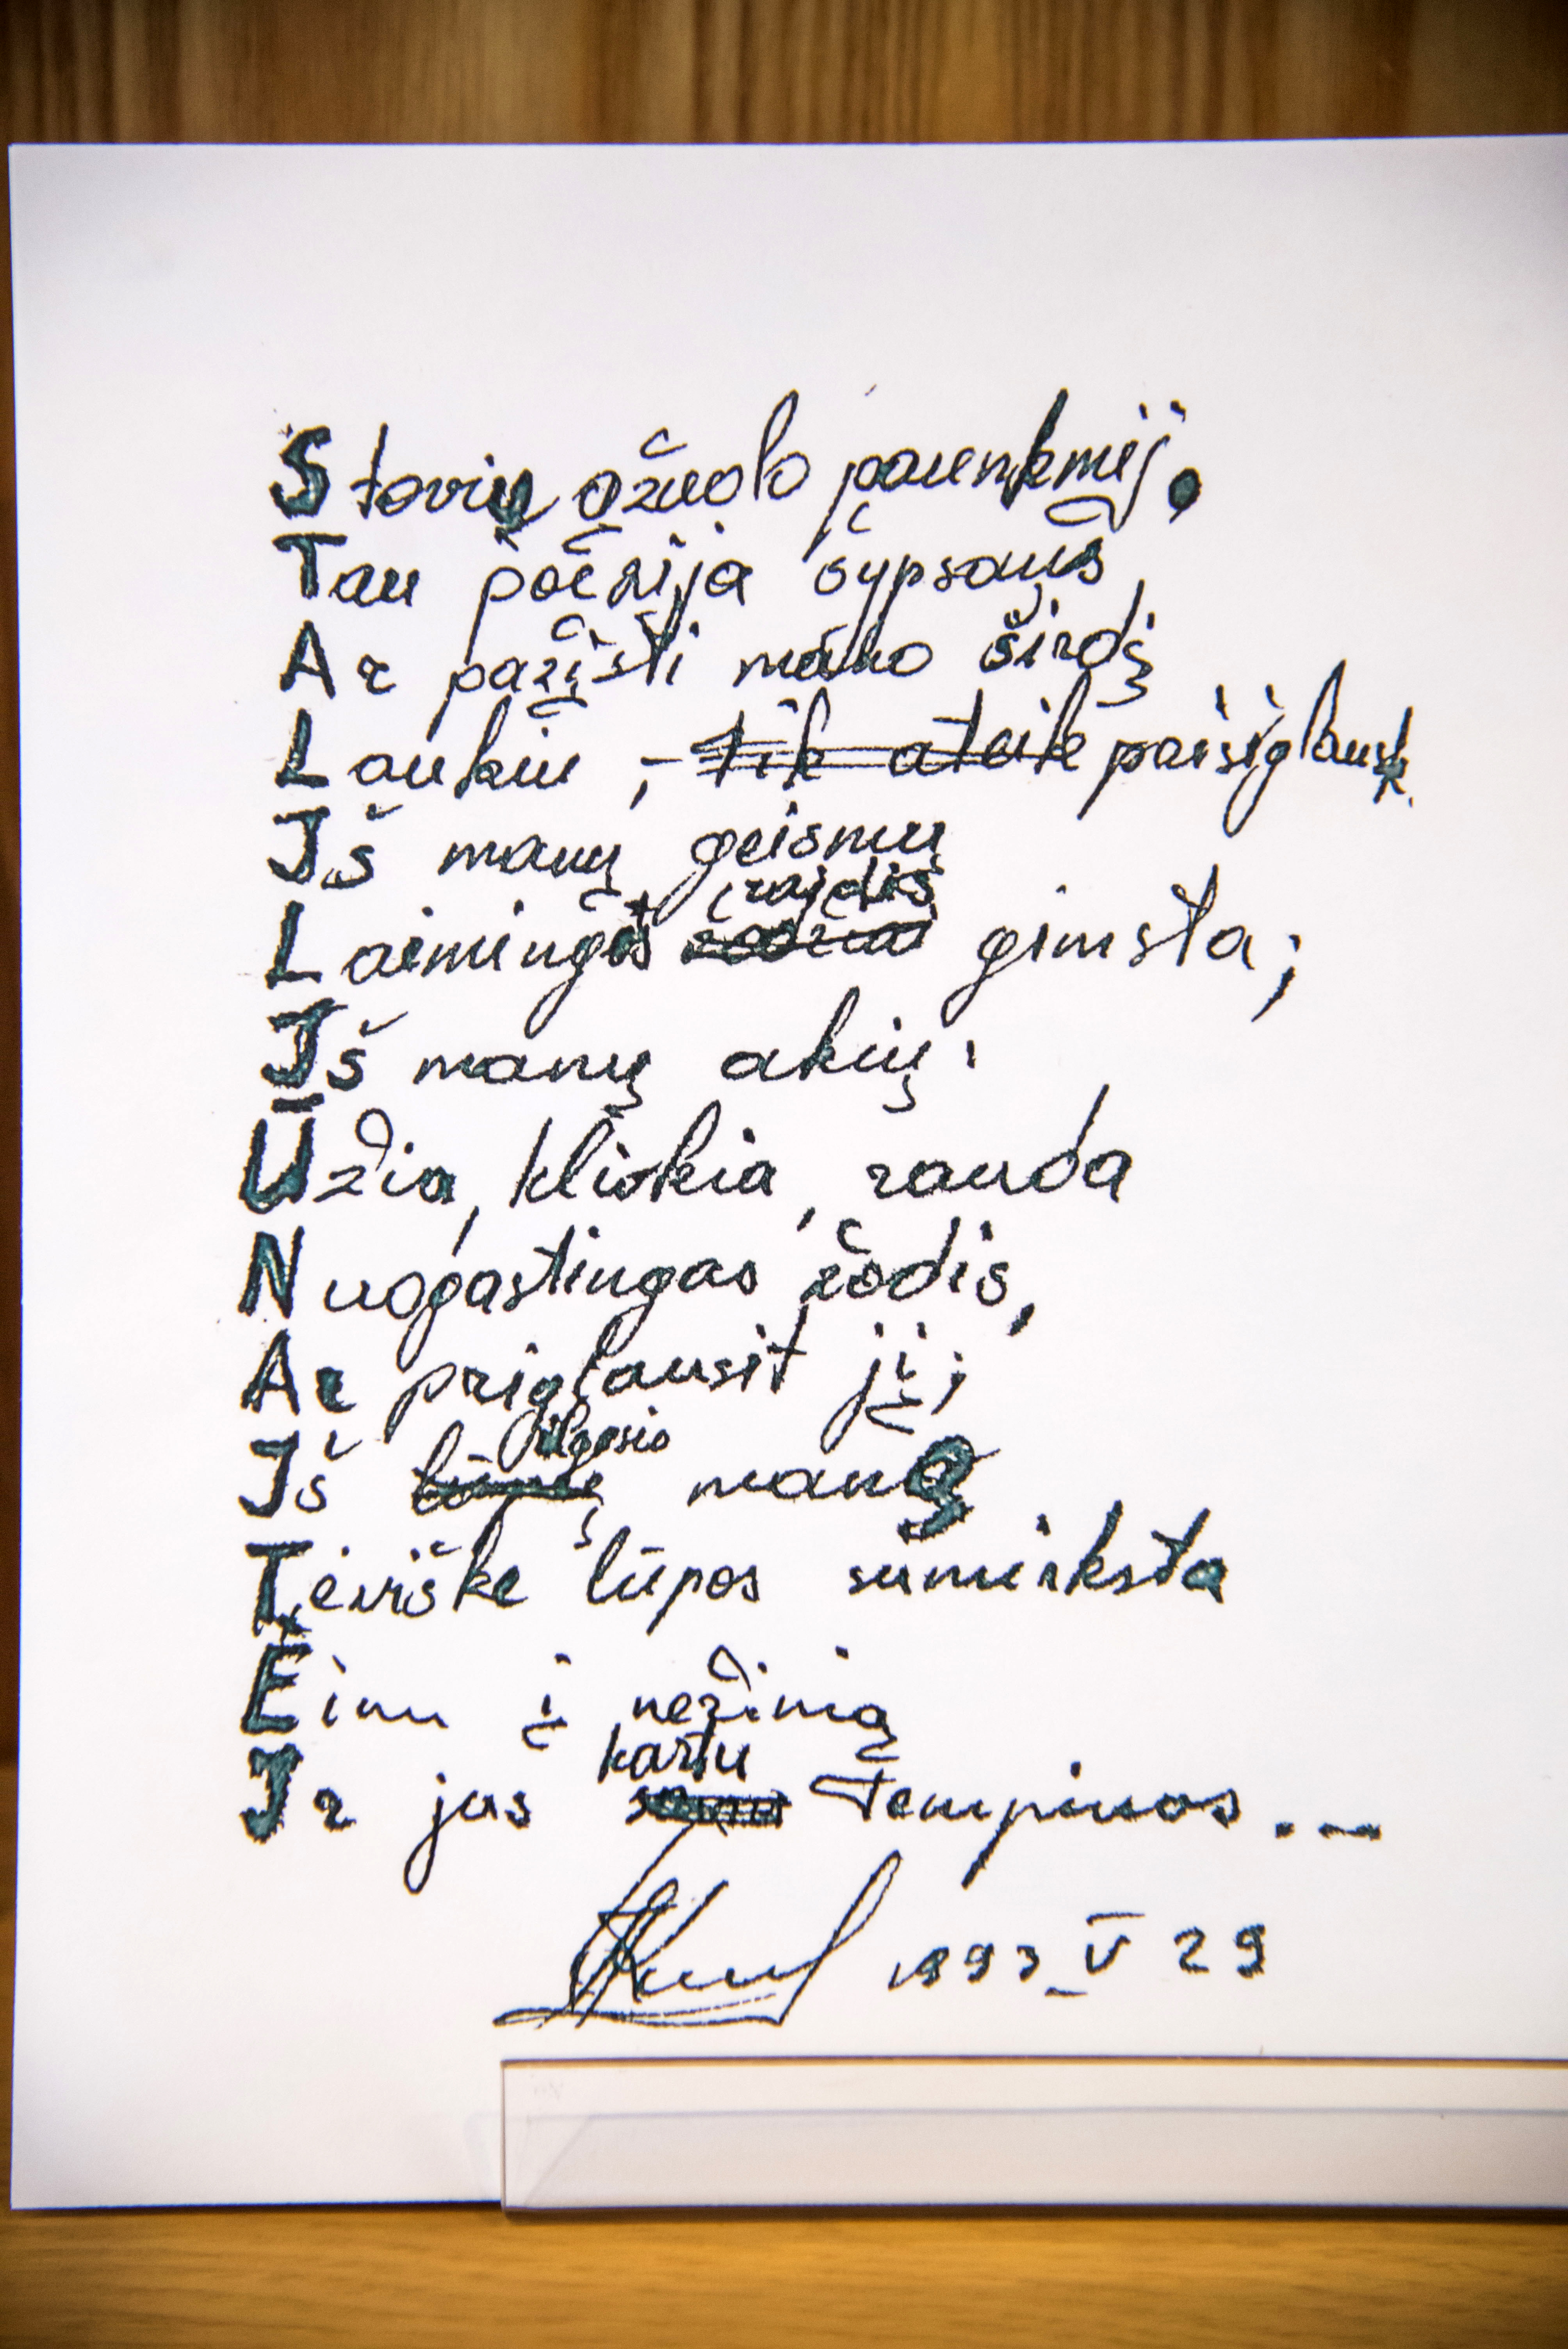 Stoviu ąžuolo paunksmėj.
Tau poezija šypsaus,
Ar pažįsti mano širdį
Laukiu, – tik ateik paisiglausk.
Iš manų geismų
Laimingas raidis gimsta;
Iš manų akių:
Ūžia, klivkia, rauda
Nuogąstingas žodis,
Ar priglausit jį;
Iš ilgesio manę
Tėviškė lūpos sumirksta
Einu į nežinią
Ir jus kartu tempiuos...
1993 V 29